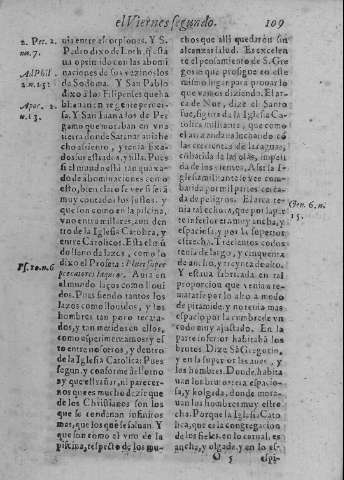 el Viernes segundo. 109
2. Pet. 2.
nu. 7.
Al Phil.
2. n. 15.
Apoc. 2.
n. 13.
Ps. 10. n. 6
uia entre escorpiones. Y S.
Pedro dixo de Loth, que esta
ua oprimido con las abomi
naciones de sus vezinos los
de Sodoma. Y San Pablo
dixo a los Filipenses que ha
bitauan en gente peruersa.
sa. Y San Iuan a los de Per
gamo que morauan en vna
tierra donde Satanas auia he
cho assiento, y tenia fixa
do su estrado, y silla. Pues
si el mundo està tan quaxa
do de abominaciones como
esto, bien claro se ve si serà
muy contados los justos, y
que son como en la piscina,
vno entre millares, aun den
tro de la Iglesia Catolica, y
entre Catolicos. Esta el mũ
do lleno de lazos, como lo
dixo el Profeta: Pluet super
peccatores laqueos. Aura en
el mundo laços como lloui
dos. Pues siendo tantos los
lazos como llouidos, y los
hombres tan poco recata
dos, y tan metidos en ellos,
como experimentamos y es
to entre nosotros, y dentro
de la Iglesia Catolica: Pues
segun, y conforme à lo no
ay que estrañar, ni parecer
nos que es mucho dezir que
de los Christianos son los
que se condenan infinitos
mas, que los que se saluan. Y
que son como el vno de la
piscina, respecto de los mu-
chos que alli quedaron sin
alcançar salud. Es excelen
te el pensamiento de S. Gre
gorio que prosigue en este
mismo proposito diziendo. El ar
ca de Nue, dize el Santo
fue, figura de la Iglesia Ca
tolica militante, que como
el arca andaua locando cõ
las corrientes de las aguas,
cõbatida de las olas, impeli
da de los vientos, Assi la I
glesia militante se ve com
batida por mil partes cerca
da de peligros. El arca te
nia tal hechura, que por la par
te inferior era muy ancha, y
espaciosa, y por la superior
estrecha. Trecientos codos
tenia de largo, y cincuenta
de ancho, y treynta de alto.
Y estaua fabricada en tal
proporcion que venia à re
matarse por lo alto a modo
de piramide, y no tenia mas
espacio por la cumbre de vn
codo muy ajustado. En la
parte inferior habitauã los
brutos. Dize Sã Gregorio,
y en la superior las aues, y
los hombres. Donde habita
uan los brutos era espacio
sa, y holgada, donde mora
uan los hombres muy estre
cha. Porque la Iglesia Cato
lica, que es la congregacion
de los fieles, en lo carnal, es
ancha, y olgada, y en lo es-
Gen. 6. n.
15.
O 5 espi-